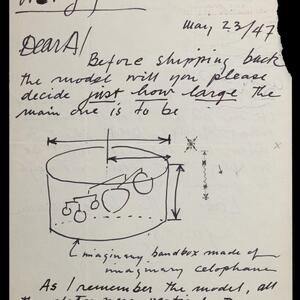 May 23/47
Dear A/
Before shipping back
the model will you please
decide just how large the
main one is to be
imaginary bandbox made of
imaginary celophane
As I remember the model, all
the